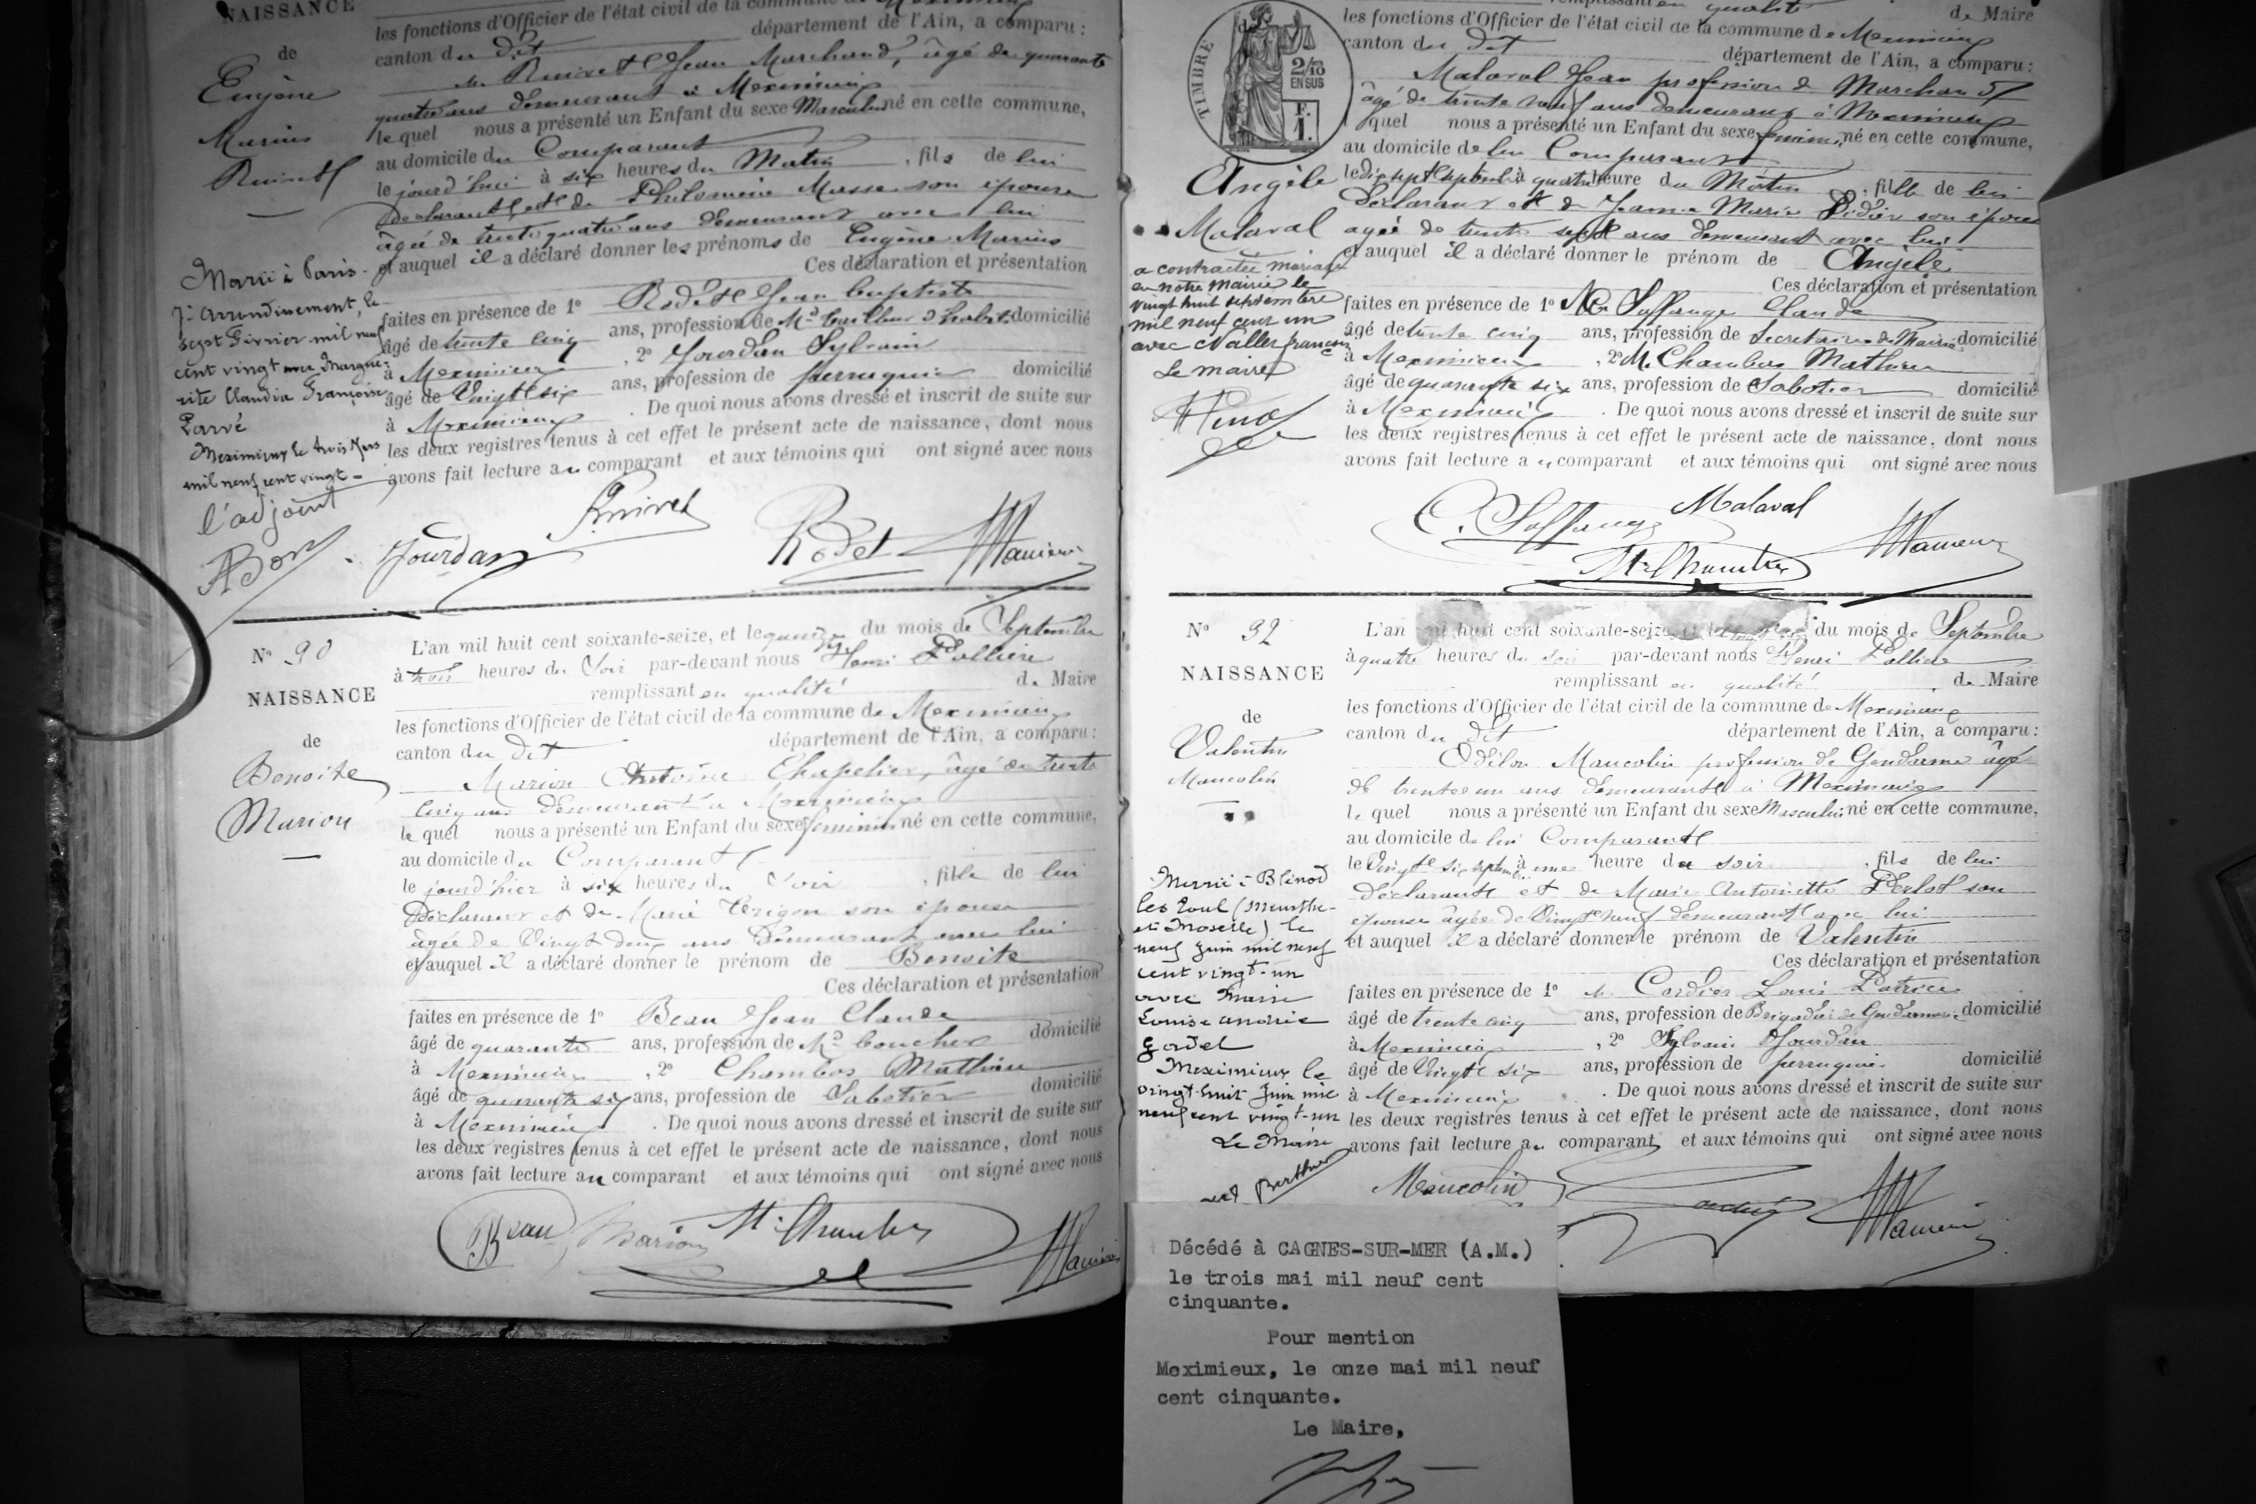 NAISSANCE
de
Eugène
Marius
les fonctions d'Officier de l'état civil de la commune de Meximieux
canton du dit département de l'Ain, a comparu :
Jean Marchand, âgé de quarante
quatre ans demeurant à Meximieux
lequel nous a présenté un Enfant du sexe Masculin né en cette commune,
au domicile du Comparant
le jourd'hui à six heures du Matin , fils de lui
Déclarant et de Philomène Masse son épouse
âgée de trente quatre ans demeurant avec lui
et auquel il a déclaré donner les prénoms de Eugène Marius
Ces déclaration et présentation
faites en présence de 1° Rodet Jean baptiste
âgé de trente cinq ans, profession de Md tailleur d'habits domicilié
à Meximieux , 2° Jourdan Sylvain
âgé de Vingt six ans, profession de perruquier domicilié
à Meximieux . De quoi nous avons dressé et inscrit de suite sur
les deux registres tenus à cet effet le présent acte de naissance, dont nous
avons fait lecture au comparant et aux témoins qui ont signé avec nous
Marié à Paris
7e arrondissement, le
sept Février mil neuf
cent vingt avec Margue-
rite Claudia Françoise
Parvé
Meximieux le trois Mars
mil neuf cent vingt -
l'adjoint
Jourdan
Rodet
N° 90
NAISSANCE
de
Benoite
Marion
L'an mil huit cent soixante-seize, et le quinze du mois de Septembre
à trois heures du Soir par-devant nous Henri Pallière
remplissant en qualité de Maire
les fonctions d'Officier de l'état civil de la commune de Meximieux
canton du dit département de l'Ain, a comparu :
Marion Antoine Chapelier, âgé de trente
cinq ans demeurant à Meximieux
lequel nous a présenté un Enfant du sexe féminin né en cette commune,
au domicile du Comparant
le jourd'hier à six heures du Soir , fille de lui
Déclarant et de Marie son épouse
âgée de Vingt deux ans Demeurant avec lui
et auquel il a déclaré donner le prénom de Benoite
Ces déclaration et présentation
faites en présence de 1° Beau Jean Claude
âgé de quarante ans, profession de Md boucher domicilié
à Meximieux , 2° Chambos Mathieu
âgé de quarante six ans, profession de Sabotier domicilié
à Meximieux . De quoi nous avons dressé et inscrit de suite sur
les deux registres tenus à cet effet le présent acte de naissance, dont nous
avons fait lecture au comparant et aux témoins qui ont signé avec nous
Beau Marion
TIMBRE
2/10
EN SUS
F.
1.
Angèle
Malaval
a contracté mariage
en notre mairie le
vingt huit septembre
mil neuf cent un
avec
Le maire
remplissant en qualité de Maire
les fonctions d'Officier de l'état civil de la commune de Meximieux
canton du dit département de l'Ain, a comparu :
Malaval Jean profession de Marchand
âgé de trente neuf ans demeurant à Meximieux
lequel nous a présenté un Enfant du sexe féminin né en cette commune,
au domicile de lui Comparant
le dix sept septembre à quatre heure du Matin , fille de lui
Déclarant et de Jeanne Marie Didier son épouse
agée de trente sept ans demeurant avec lui
et auquel il a déclaré donner le prénom de Angèle
Ces déclaration et présentation
faites en présence de 1° Mr Saffange Claude
âgé de trente cinq ans, profession de Secrétaire de Mairie domicilié
à Meximieux , 2° M. Chambos Mathieu
âgé de quarante six ans, profession de Sabotier domicilié
à Meximieux . De quoi nous avons dressé et inscrit de suite sur
les deux registres tenus à cet effet le présent acte de naissance, dont nous
avons fait lecture au comparant et aux témoins qui ont signé avec nous
C. Saffange Malaval
N° 92
NAISSANCE
de
Valentin
Maucolin
L'an mil huit cent soixante-seize, du mois de Septembre
à quatre heures du soir par-devant nous Henri Pallière
remplissant en qualité de Maire
les fonctions d'Officier de l'état civil de la commune de Meximieux
canton du dit département de l'Ain, a comparu :
Odilon Maucolin profession de Gendarme âgé
de trente un ans demeurant à Meximieux
lequel nous a présenté un Enfant du sexe Masculin né en cette commune,
au domicile de lui Comparant
le Vingt six septembre à une heure du soir , fils de lui
Déclarant et de Marie Antoinette Perlot son
épouse âgée de Vingt neuf demeurant avec lui
et auquel il a déclaré donner le prénom de Valentin
Ces déclaration et présentation
faites en présence de 1° Mr Cordier Louis Patrice
âgé de trente cinq ans, profession de Brigadier de Gendarmerie domicilié
à Meximieux , 2° Sylvain Jourdan
âgé de Vingt six ans, profession de perruquier domicilié
à Meximieux . De quoi nous avons dressé et inscrit de suite sur
les deux registres tenus à cet effet le présent acte de naissance, dont nous
avons fait lecture au comparant et aux témoins qui ont signé avec nous
Marié à Blénod
les Toul (Meurthe-
et Moselle) le
neuf Juin mil neuf
cent vingt-un
avec Marie
Louise
Godel
Meximieux le
vingt-huit Juin mil
neuf cent vingt-un
Le Maire
Berthier
Maucolin
Décédé à CAGNES-SUR-MER (A.M.)
le trois mai mil neuf cent
cinquante.
Pour mention
Meximieux, le onze mai mil neuf
cent cinquante.
Le Maire,